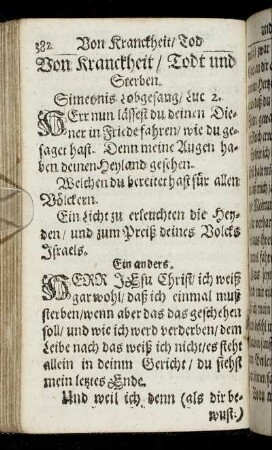 382. Von Kranckheit/ Tod
Von Kranckheit/ Todt und
Sterben.
Simeonis Lobgesang/ Luc 2.
HErr nun lässest du deinen Die-
ner in Friede fahren/ wie du ge-
saget hast. Denn meine Augen ha-
ben deinen Heyland gesehen.
Welchen du bereitet hast für allen
Völckern.
Ein Licht zu erleuchten die Hey-
den/ und zum Preiß deines Volcks
Israels.
Ein anders.
HERR JEsu Christ/ ich weiß
gar wohl/ daß ich einmal muß
sterben/ wenn aber das das geschehen
soll/ und wie ich werd verderben/ dem
Leibe nach das weiß ich nicht/ es steht
allein in deinm Gericht/ du siehst
mein letztes Ende.
Und weil ich denn (als dir be-
wust.)